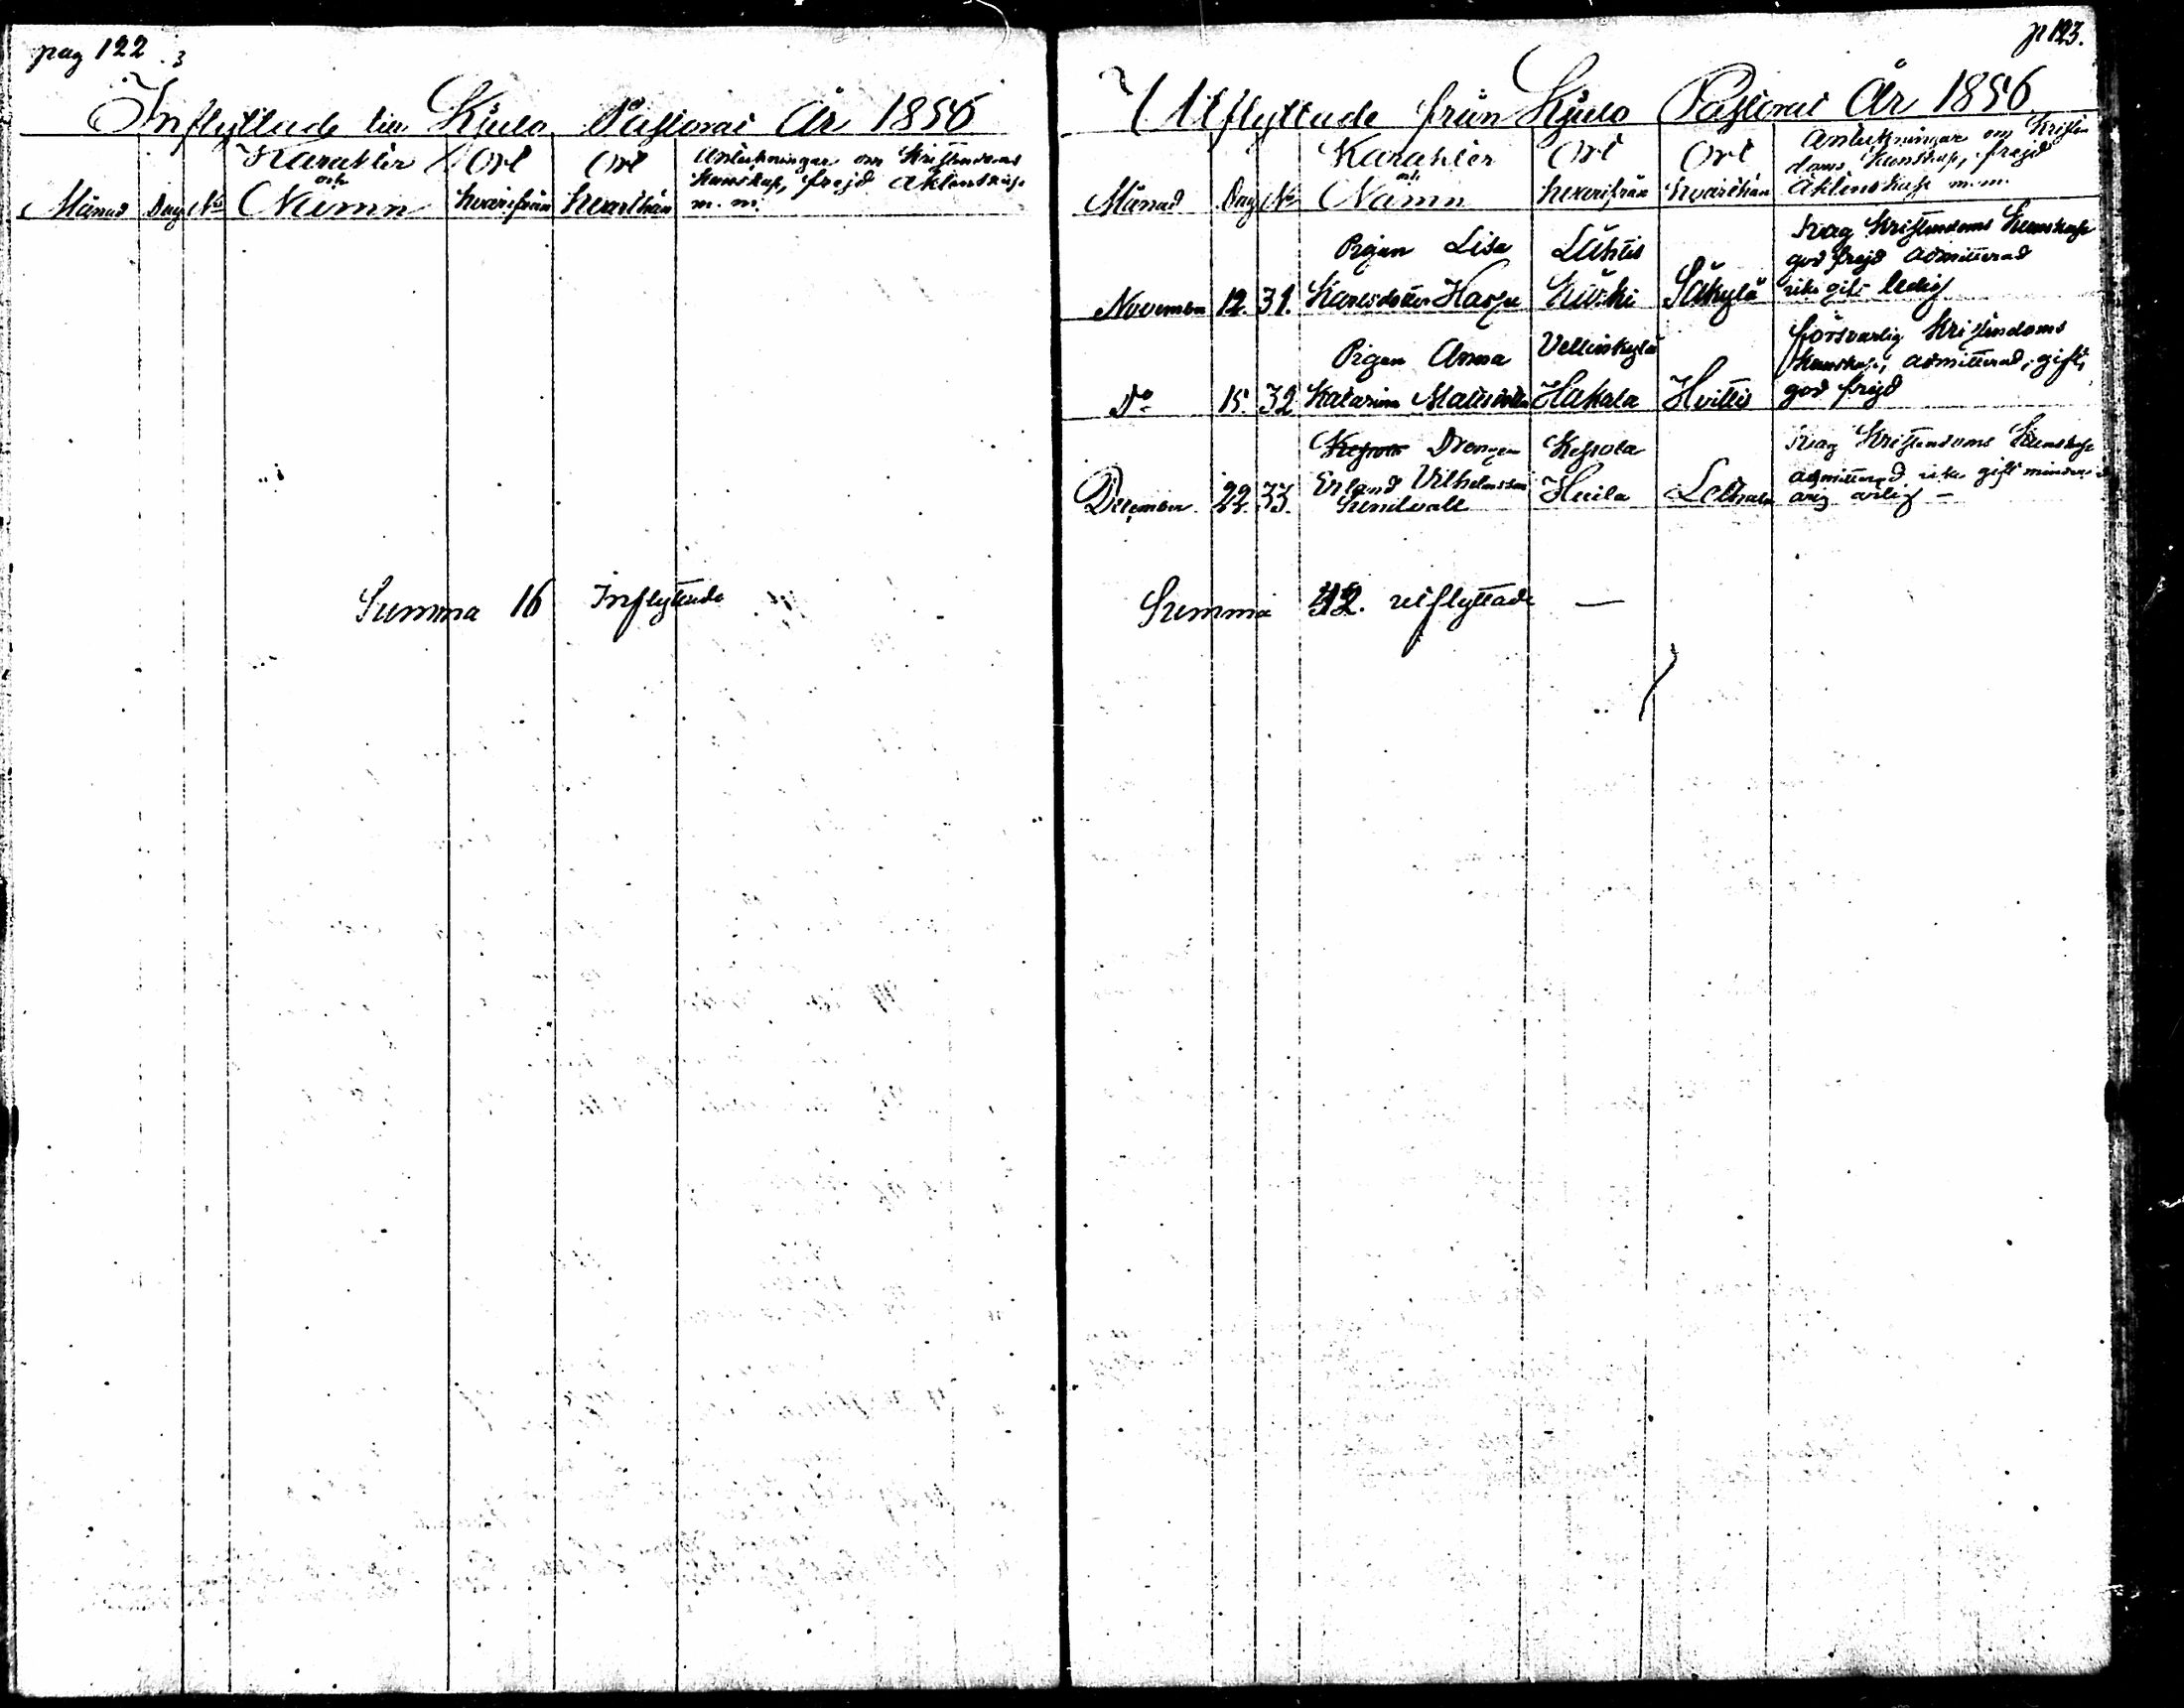 pag 122
Inflyttade till Kjulo Pastorat År 1856
Karakter Ort Ort Anteckningar om Kristendoms
och kunskap, frejd Äktenskap
Månad Dag No Namn hvarifrån hvarthän m. m.
Summa 16 Inflyttade
p 123.
Utflyttade från Kjulo Pastorat År 1856
Karakter Ort Ort Anteckningar om Kristen
och doms kunskap, frejd
Månad Dag No Namn hvarifrån hvarthän Äktenskap m. m.
Pigan Lisa Lähtis svag Kristendoms kunskap
god frejd admitterad
November 12. 31. Karlsdotter Säkylä icke gift ledig
Pigan Anna Vellinkylä försvarlig Kristendoms
kunskap, admitterad, gift,
Do 15. 32 Katarina Mattsdotter Hakala Hvittis god frejd
Drengen Kepola svag Kristendoms kunskap
Erland Vilhelmsson admitterad icke gift
December 22. 33. Huila
Summa utflyttade —